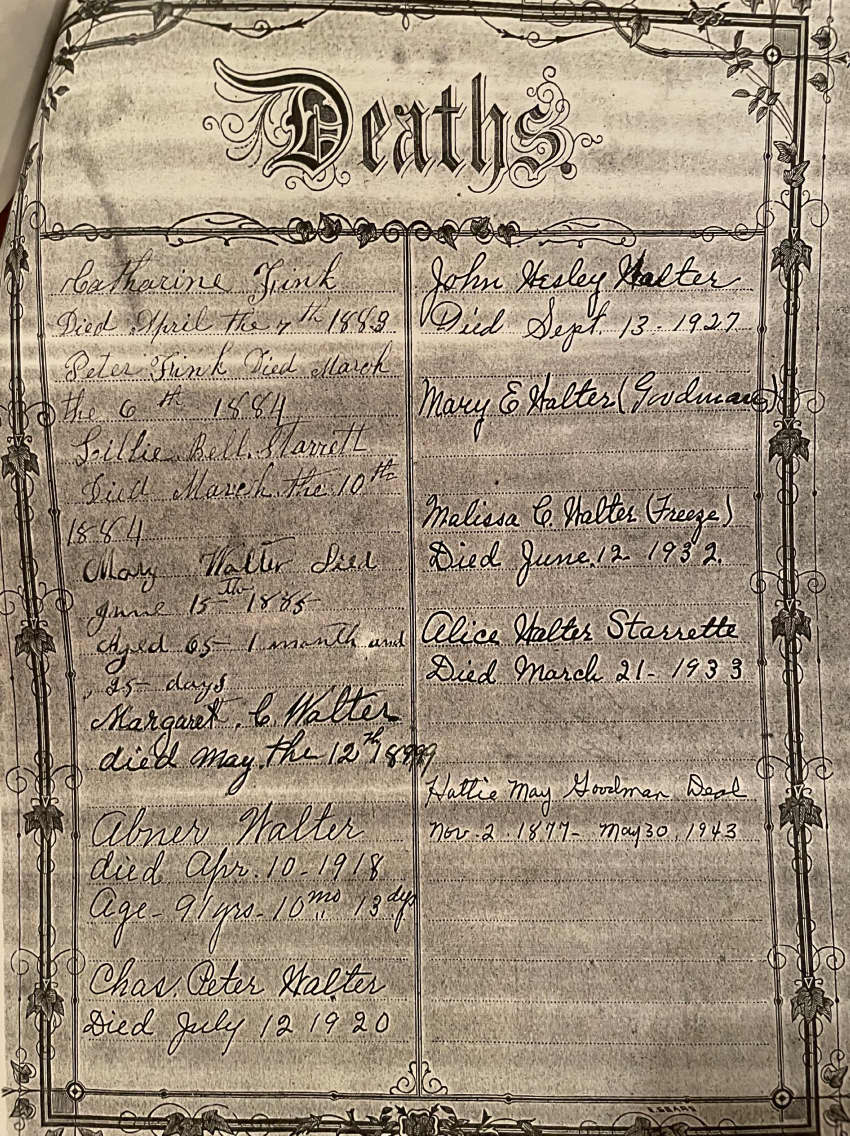 Deaths.
Catharine Fink
Died April the 7th 1883
Peter Fink Died March
the 6th 1884
Lillie Bell Starrett
Died March the 10th
1884
Mary Walter Died
June 15th 1885
Aged 65 1 month and
25 days
Margaret. C. Walter
died may. the 12th 1899
Abner Walter
died Apr. 10-1918
Age- 91 yrs- 10 mo 13 dys
Chas. Peter Walter
Died July 12 1920
John Wesley Walter
Died Sept. 13-1927
Mary E Walter (Goodman)
Malissa C. Walter (Freeze)
Died June. 12 1932.
Alice Walter Starrette
Died March 21- 1933
Hattie May Goodman Deal
Nov. 2. 1877- May 30, 1943
E. SEARS